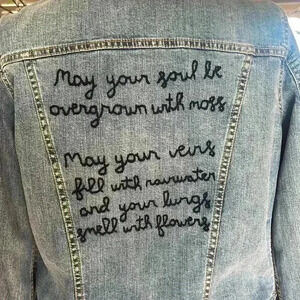 May your soul be
overgrown with moss
May your veins
fill with rainwater
and your lungs
smell with flowers